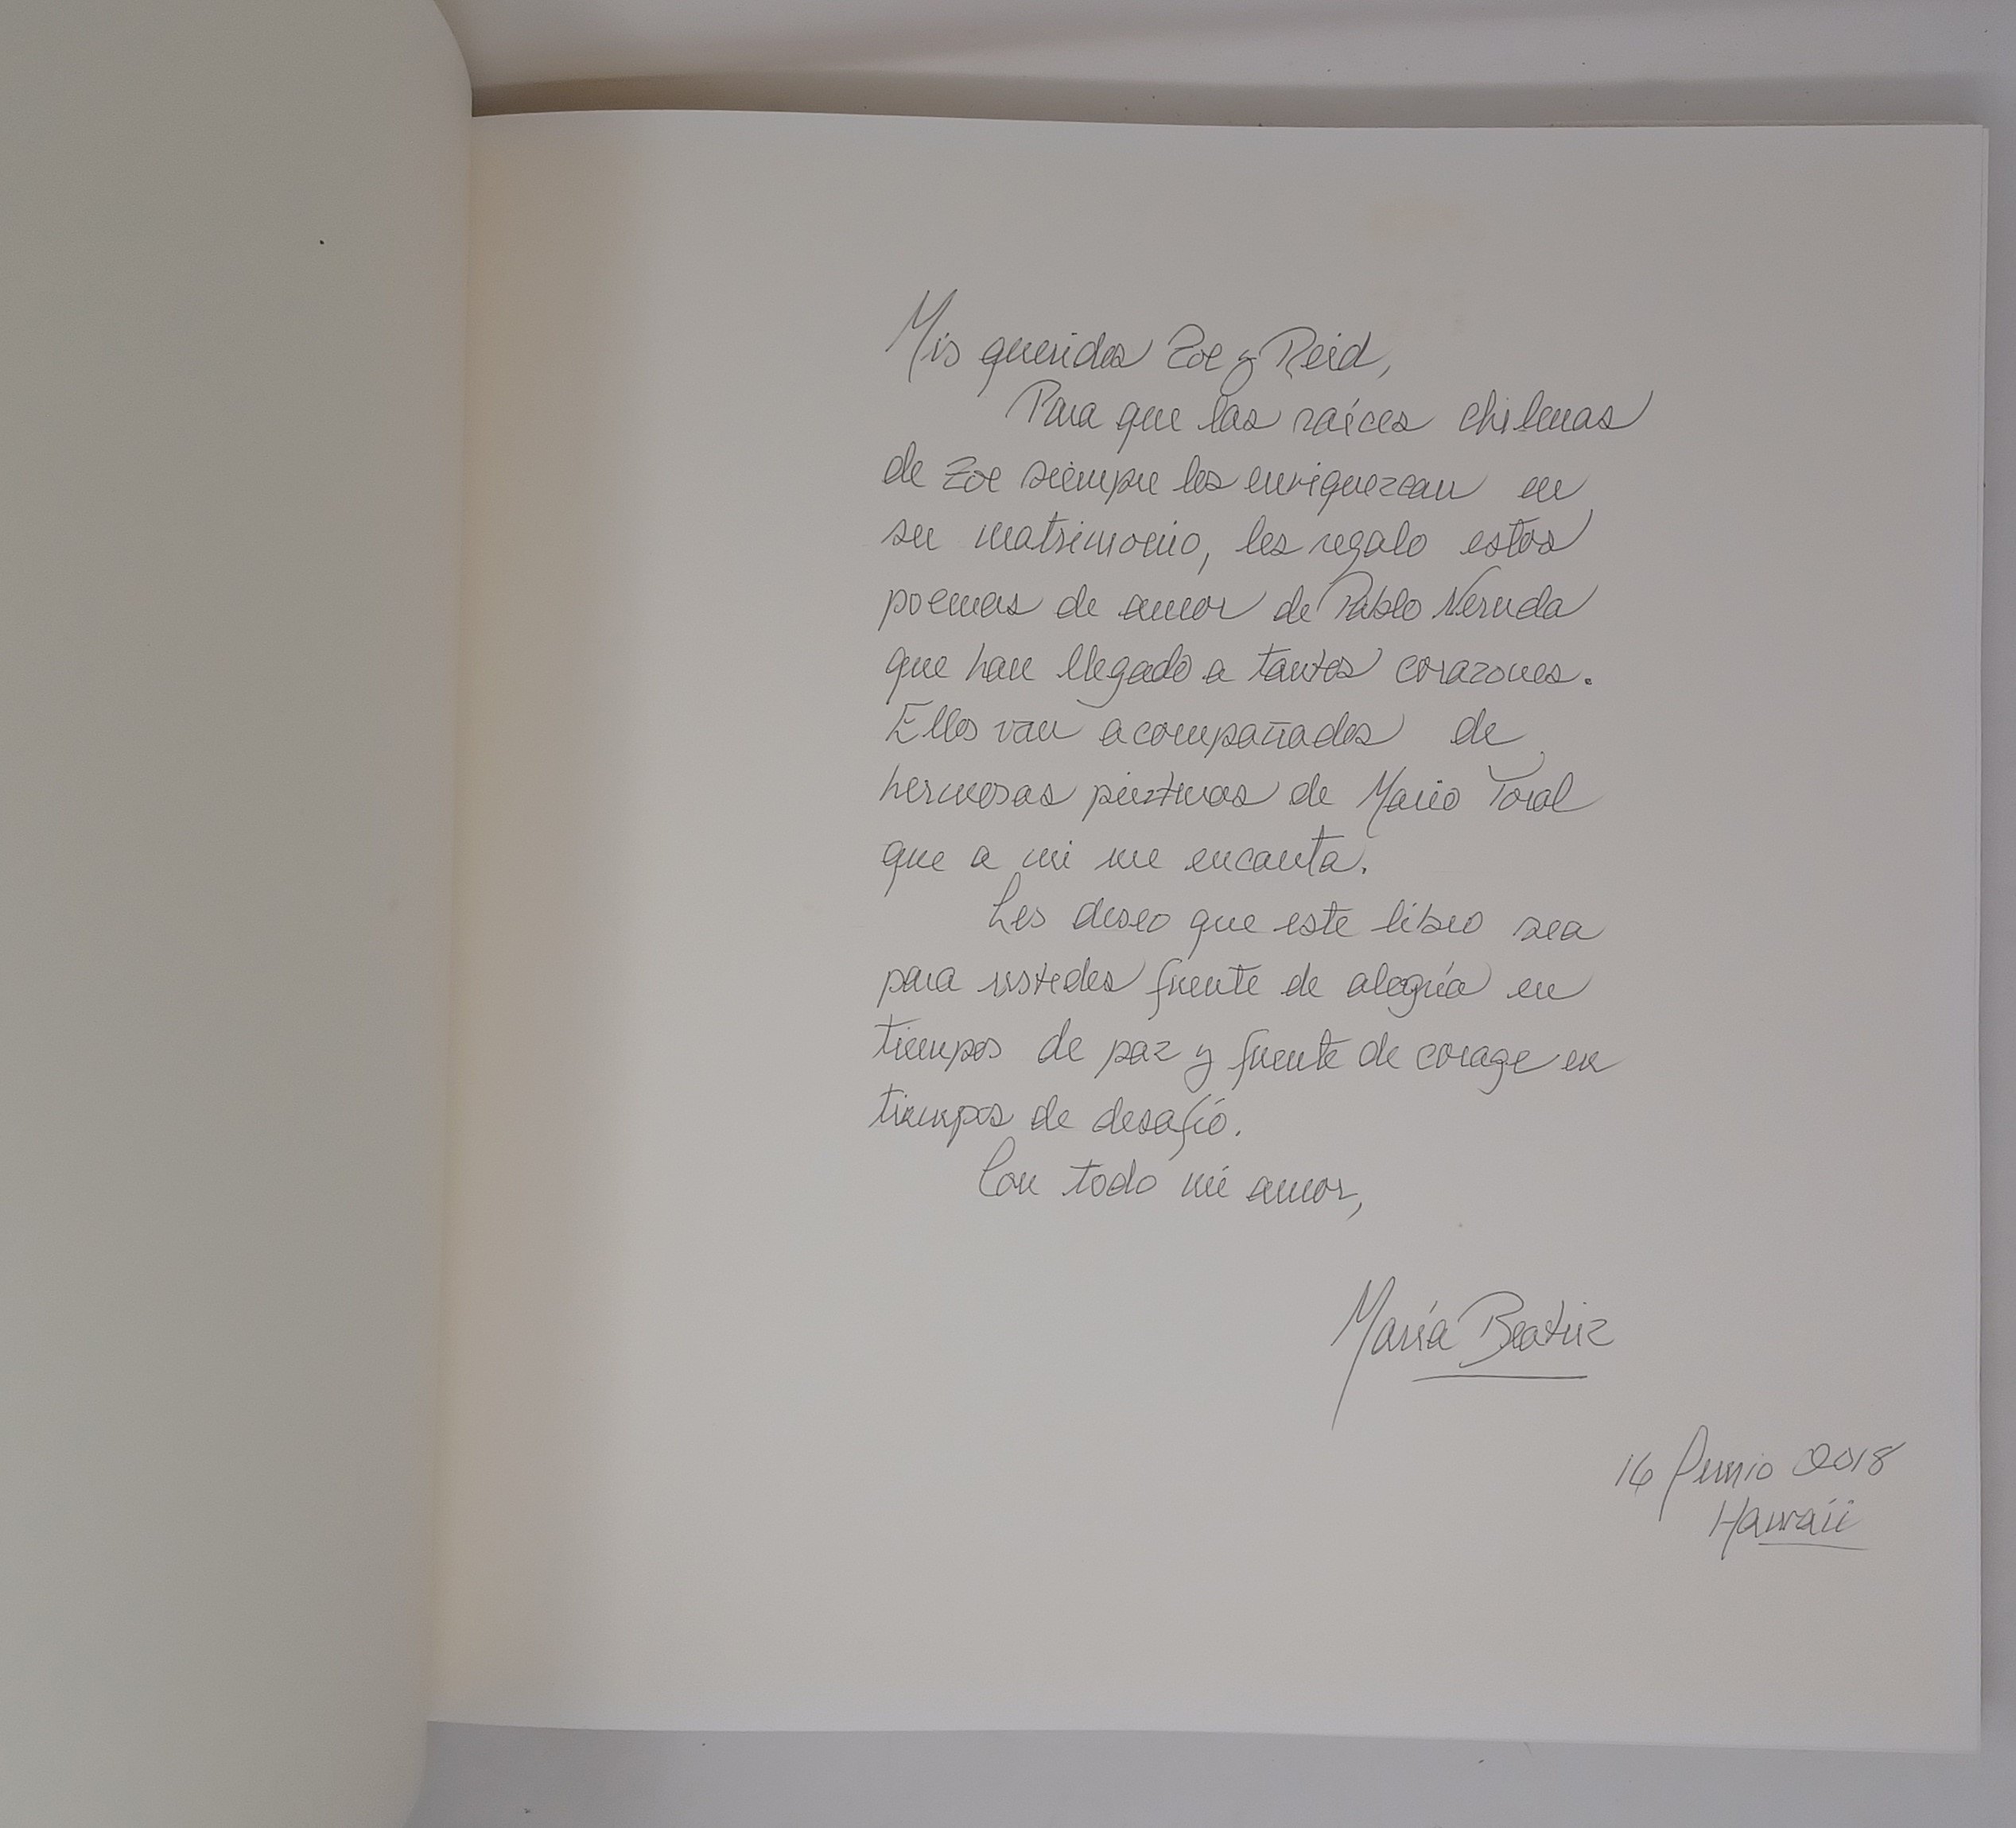 Mis queridos Zoe y Reid,
Para que las raíces chilenas
de Zoe siempre los enriquezcan en
su matrimonio, les regalo estos
poemas de amor de Pablo Neruda
que han llegado a tantos corazones.
Ellos van acompañados de
hermosas pinturas de Mario Toral
que a mi me encanta.
Les deseo que este libro sea
para ustedes fuente de alegría en
tiempos de paz y fuente de corage en
tiempos de desafío.
Con todo mi amor,
María Beatriz
16 Junio 2018
Hawaii